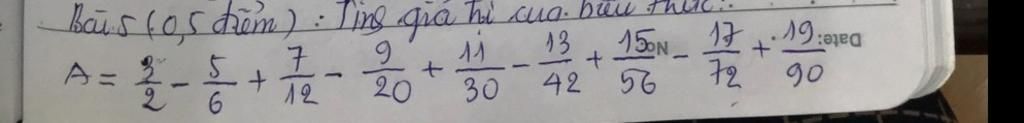 Bài 5 (0,5 điểm): Tính giá trị của biểu thức:
A = 3/2 - 5/6 + 7/12 - 9/20 + 11/30 - 13/42 + 15/56 - 17/72 + 19/90
No
Date: